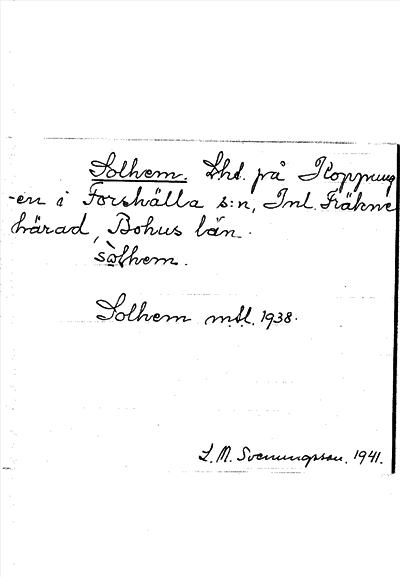 Solhem. Lht. på Koppung
-en i Forshälla s:n, Inl. Fräkne
härad, Bohus län.
sòlhem.
Solhem mtl. 1938.
L. M. Svenungsson. 1941.